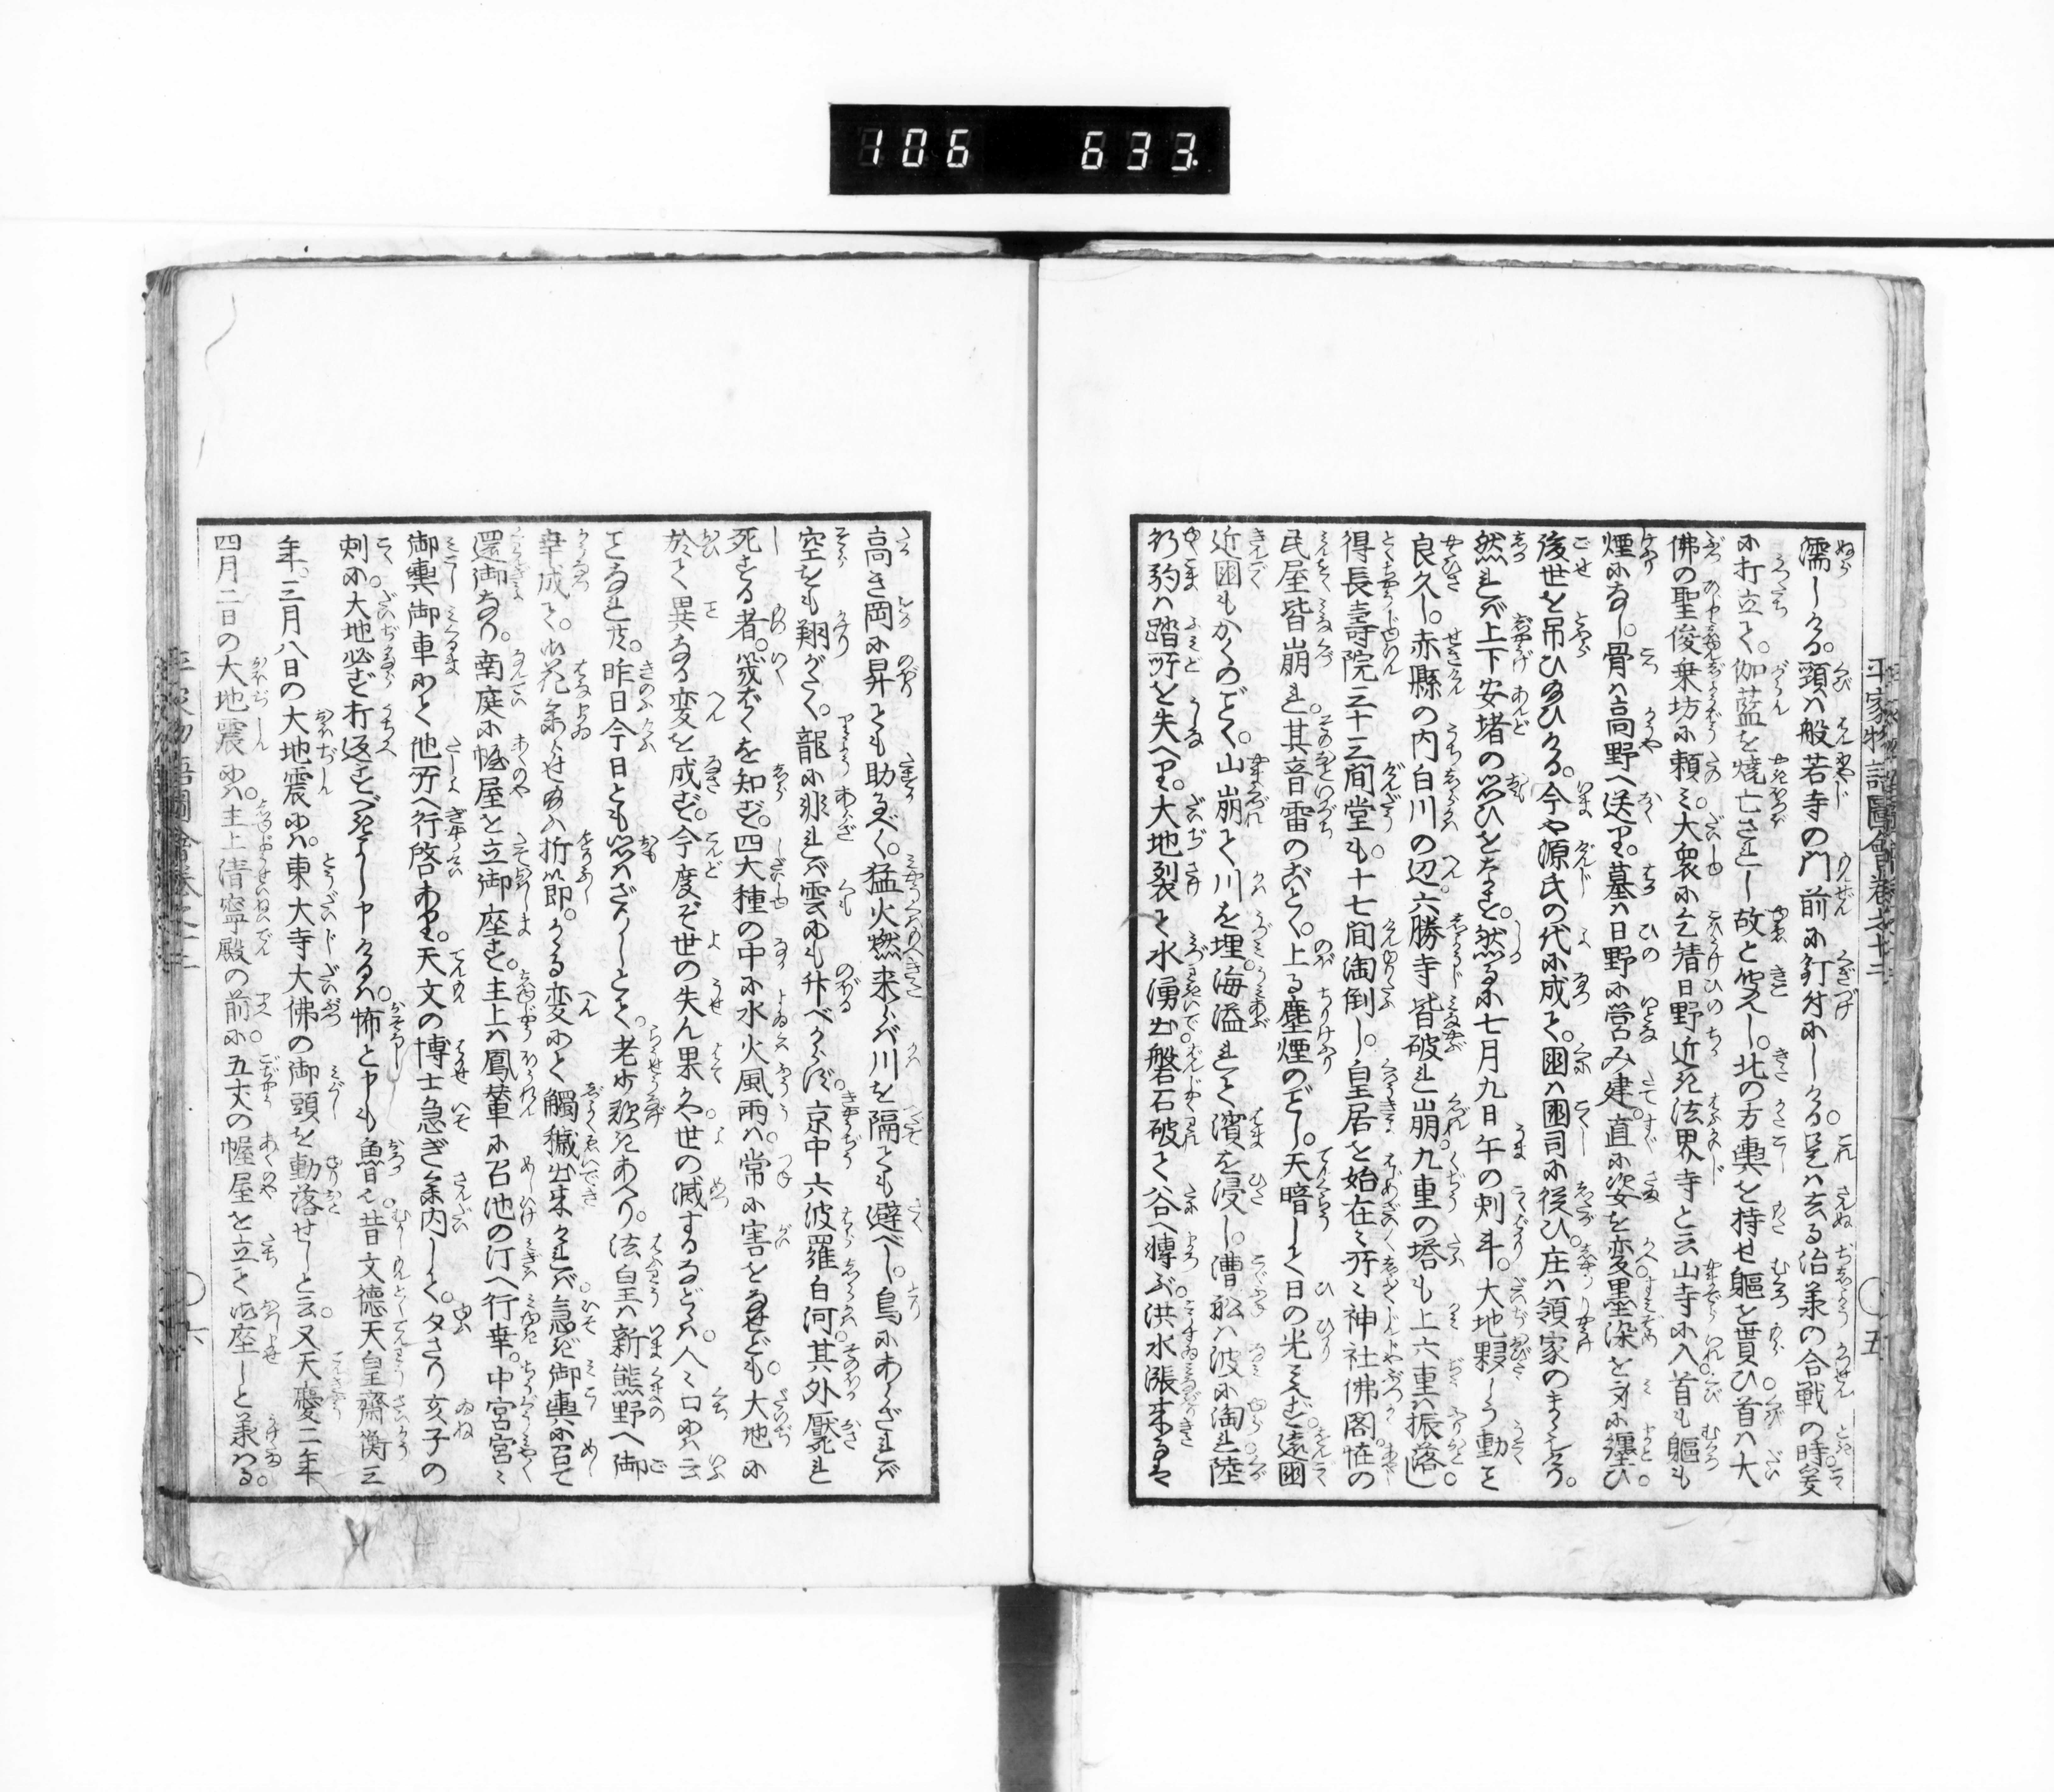 106 633.
平家物語圖會巻之十二
五
濡しける。頸は般若寺の門前に釘付にしける。是は去る治承の合戦の時爰
に打立て。伽藍を焼亡されし故と聞えし。北の方輿を持せ軀を貰ひ首は大
佛の聖俊乗坊に頼ミ。大衆に乞請日野近き法界寺と云山寺に入首も軀も
煙になし。骨は高野へ送り。墓は日野に営み建。直に姿を変墨染を身に纏ひ。
後世を吊ひ給ひける。今や源氏の代に成て。国は国司に従ひ。庄は領家のまゝなり。
然れば上下安堵の思ひをなす。然るに七月九日午の刻斗。大地夥しう動き
良久し。赤縣の内白川の辺。六勝寺皆破れ崩。九重の塔も上六重は振落し。
得長壽院三十三間堂も。十七間淘倒し。皇居を始在々所々神社佛閣。恠の
民屋皆崩れ。其音雷のごとく。上る塵煙のごし。天暗して日の光見えず。遠国
近国もかくのごく。山崩て川を埋。海溢れて濱を浸し。漕舩は波に淘れ陸
行駒は踏所を失へり。大地裂て水湧出。磐石破て谷へ轉ぶ。洪水漲来るは
高き岡に昇ても助るべく。猛火燃来らば川を隔ても避べし。鳥にあらざれば
空をも翔がたく。龍に非れば雲にも升べからず。京中六波羅白河。其外厭れ
死する者。幾許を知ず。四大種の中に水火風雨は。常に害をなせども。大地に
於て異なる変を成ず。今度ぞ世の失ん果かや。世の滅するなどゝは。人々口には云
となれ共。昨日今日とも思はざりしとて。老少歎きあへり。法皇は新熊野へ御
幸成て。御花参らせ給ふ折節。かゝる変にて觸穢出来ければ。急ぎ御輿に召て
還御なり。南庭に幄屋を立御座す。主上は鳳輦に召池の汀へ行幸。中宮宮々
御輿御車にて他所へ行啓あり。天文の博士急ぎ参内して。夕さり亥子の
刻に大地必ず打返すべきよし申ける。怖と申も愚也。昔文徳天皇齋衡三
年。三月八日の大地震には。東大寺大佛の御頭を動落せしと云。又天慶二年
四月二日の大地震には。主上清寧殿の前に。五丈の幄屋を立て御座しと承はる。
平家物語圖會巻之十二
六